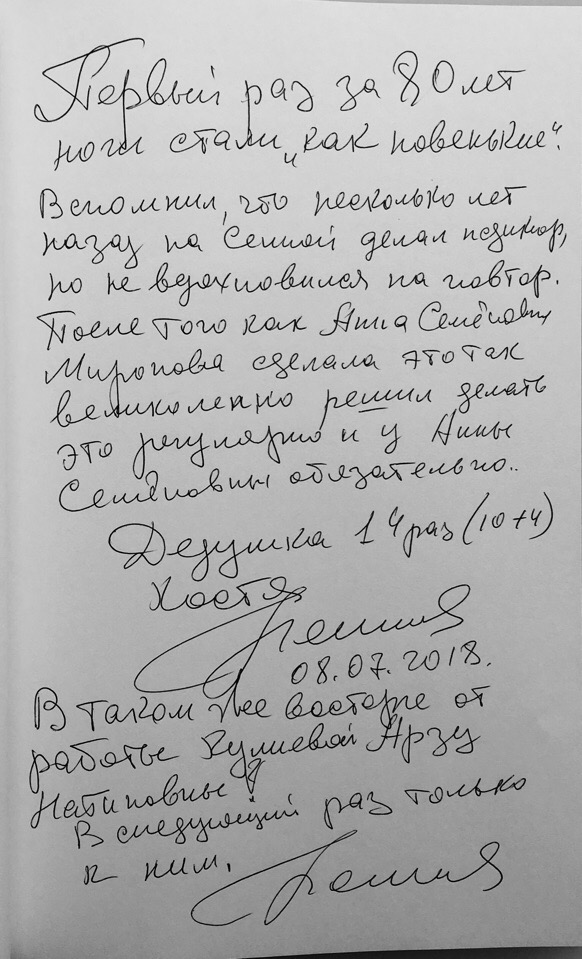 Первый раз за 80 лет
ноги стали „как новенькие".
Вспомнил, что несколько лет
назад на Сенной делал педикюр,
но не вдохновился на повтор.
После того как Анна Семёновна
Миронова сделала это так
великолепно решил делать
это регулярно и у Анны
Семёновны обязательно..
Дедушка 14 раз (10+4)
Костя
08.07.2018.
В таком же восторге от
работы Кулиевой Арзу
Натиповны
В следующий раз только
к ним.